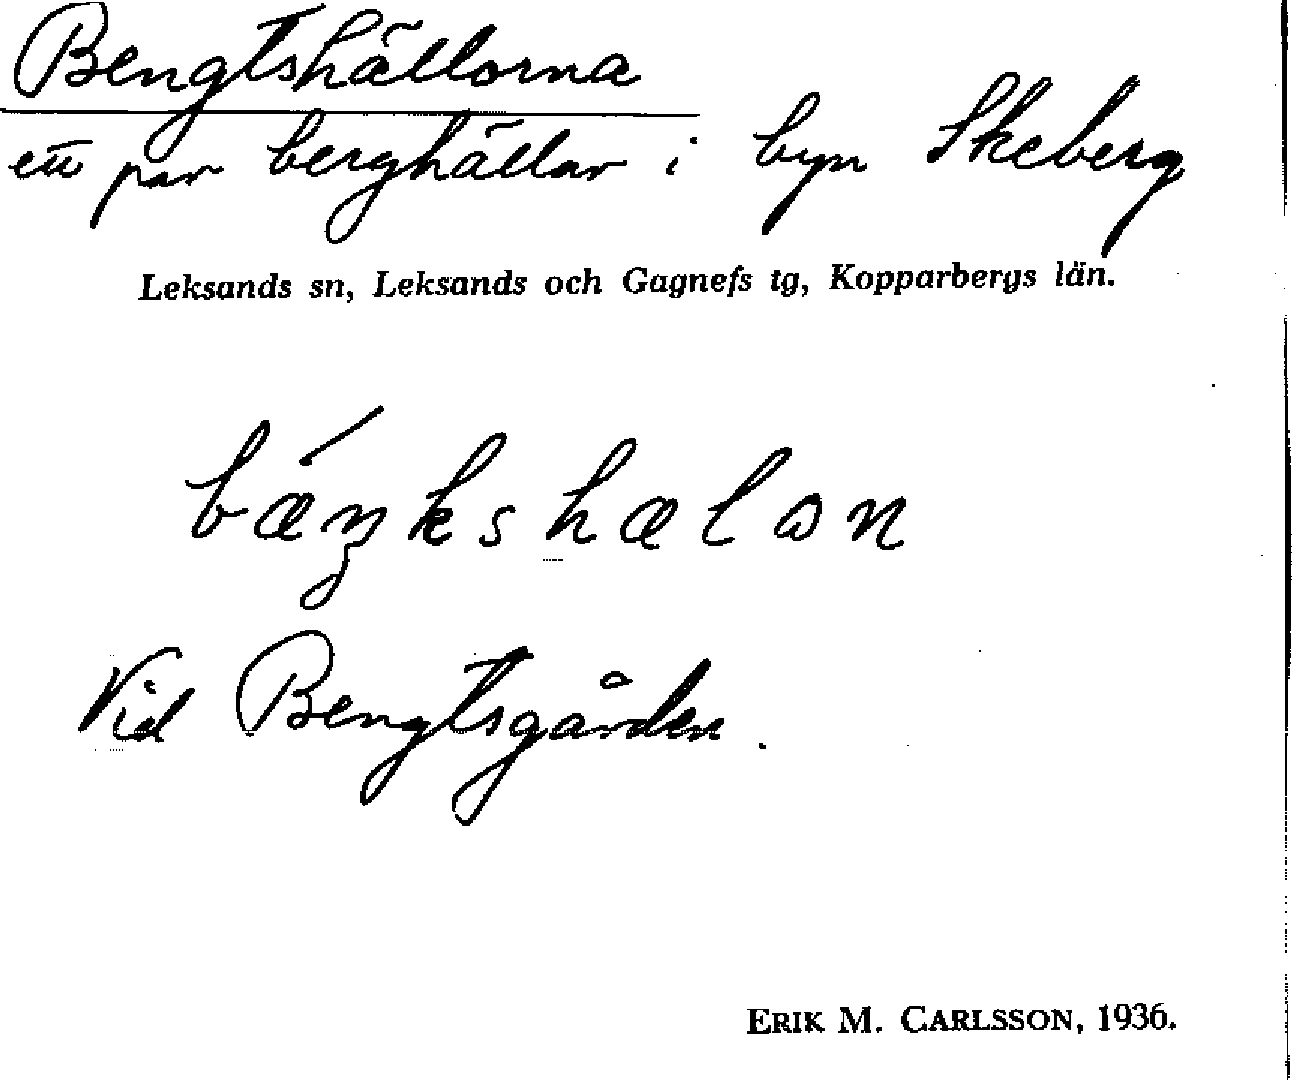 Bengtshällorna
ett par berghällar i byn Skeberg
Leksands sn, Leksands och Gagnefs tg, Kopparbergs län.
bǽŋkshælɔn
Vid Bengtsgården.
ERIK M. CARLSSON, 1936.